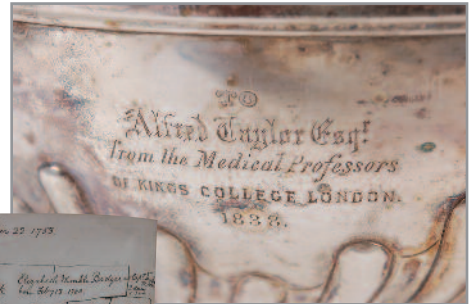 TO
Alfred Taylor Esqr.
from the Medical Professors
OF KINGS COLLEGE LONDON.
1838.
23 1753.
Elizabeth Humble Badger